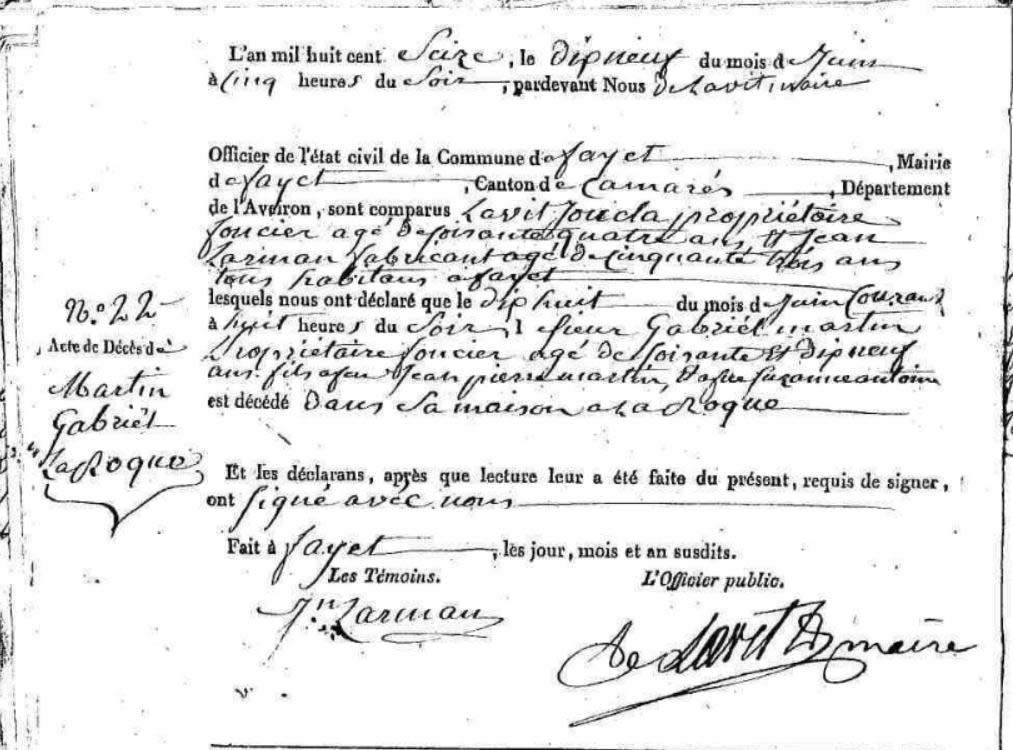 L'an mil huit cent Seize, le dipneuf du mois de Juin
à Cinq heures du Soir, pardevant Nous De Lavit, maire
Officier de l'état civil de la Commune de fayet, Mairie
de fayet, Canton de Camarés, Département
de l'Aveiron, sont comparus Lavit Joucla propriétaire
foncier agé de soisante quatre ans, Et Jean
Larman fabricant agé de cinquante trois ans
tous habitans a fayet
lesquels nous ont déclaré que le dip huit du mois de Juin Courant
à huit heures du Soir, l sieur Gabriël martin
propriétaire foncier agé de soisante Et dipneuf
ans, fils afeu Jean pierre martin, Et afue Suzanne antoine
est décédé Dans Sa maison a La Roque
N.o 22
Acte de Décès de
Martin
Gabriël
La Roque
Et les déclarans, après que lecture leur a été faite du présent, requis de signer,
ont signé avec nous
Fait à fayet, les jour, mois et an susdits.
Les Témoins. L'Officier public.
Jn Larman
De Lavit maire